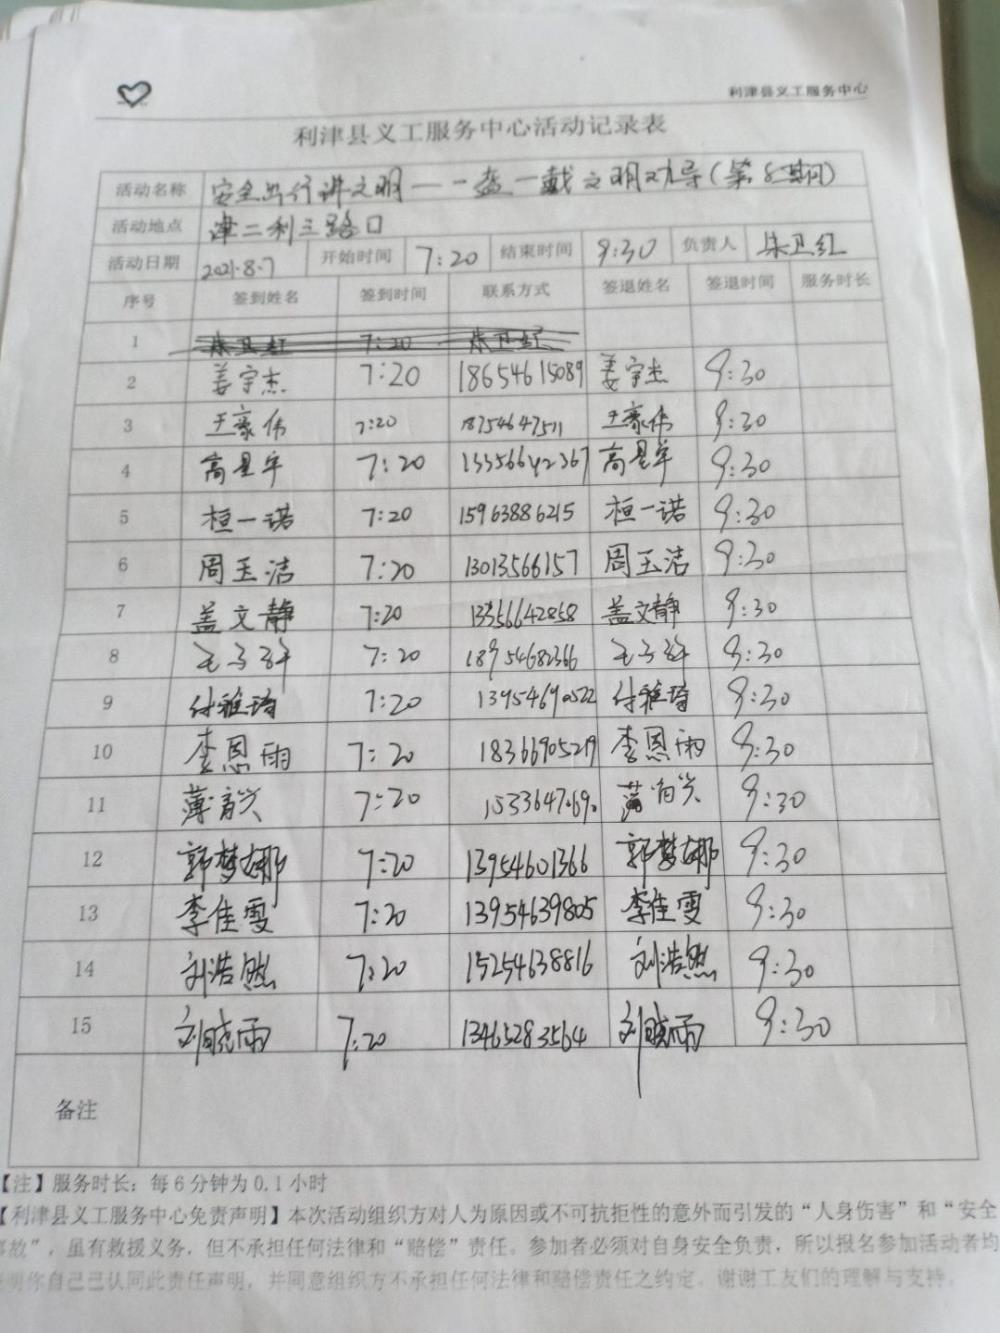 利津县义工服务中心
利津县义工服务中心活动记录表
活动名称 安全出行讲文明——一盔一戴文明劝导(第8期)
活动地点 津二利三路口
活动日期 2021.8.7 开始时间 7:20 结束时间 9:30 负责人 朱卫红
序号 签到姓名 签到时间 联系方式 签退姓名 签退时间 服务时长
1 朱卫红 7:20 朱卫红
2 姜宇杰 7:20 18654615089 姜宇杰 9:30
3 王豪伟 7:20 18754647511 王豪伟 9:30
4 高星宇 7:20 13356642367 高星宇 9:30
5 桓一诺 7:20 15963886215 桓一诺 9:30
6 周玉洁 7:20 13013566157 周玉洁 9:30
7 盖文静 7:20 13356642858 盖文静 9:30
8 7:20 18954682366 9:30
9 付雅琦 7:20 13954690522 付雅琦 9:30
10 李恩雨 7:20 18366905219 李恩雨 9:30
11 7:20 9:30
12 郭梦娜 7:20 13954601366 郭梦娜 9:30
13 李佳雯 7:20 13954639805 李佳雯 9:30
14 刘浩然 7:20 15254638816 刘浩然 9:30
15 刘晓雨 7:20 13465283564 刘晓雨 9:30
备注
【注】服务时长：每6分钟为0.1小时
【利津县义工服务中心免责声明】本次活动组织方对人为原因或不可抗拒性的意外而引发的“人身伤害”和“安全
事故”，虽有救援义务，但不承担任何法律和“赔偿”责任。参加者必须对自身安全负责，所以报名参加活动者均
明你自己已认同此责任声明，并同意组织方不承担任何法律和赔偿责任之约定。谢谢工友们的理解与支持。